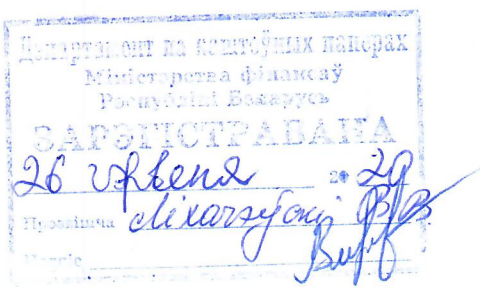 Дэпартамент па каштоўных паперах
Міністэрства фінансаў
Рэспублікі Беларусь
ЗАРЭГІСТРАВАНА
26 чэрвеня 2020
Прозвішча
Подпіс